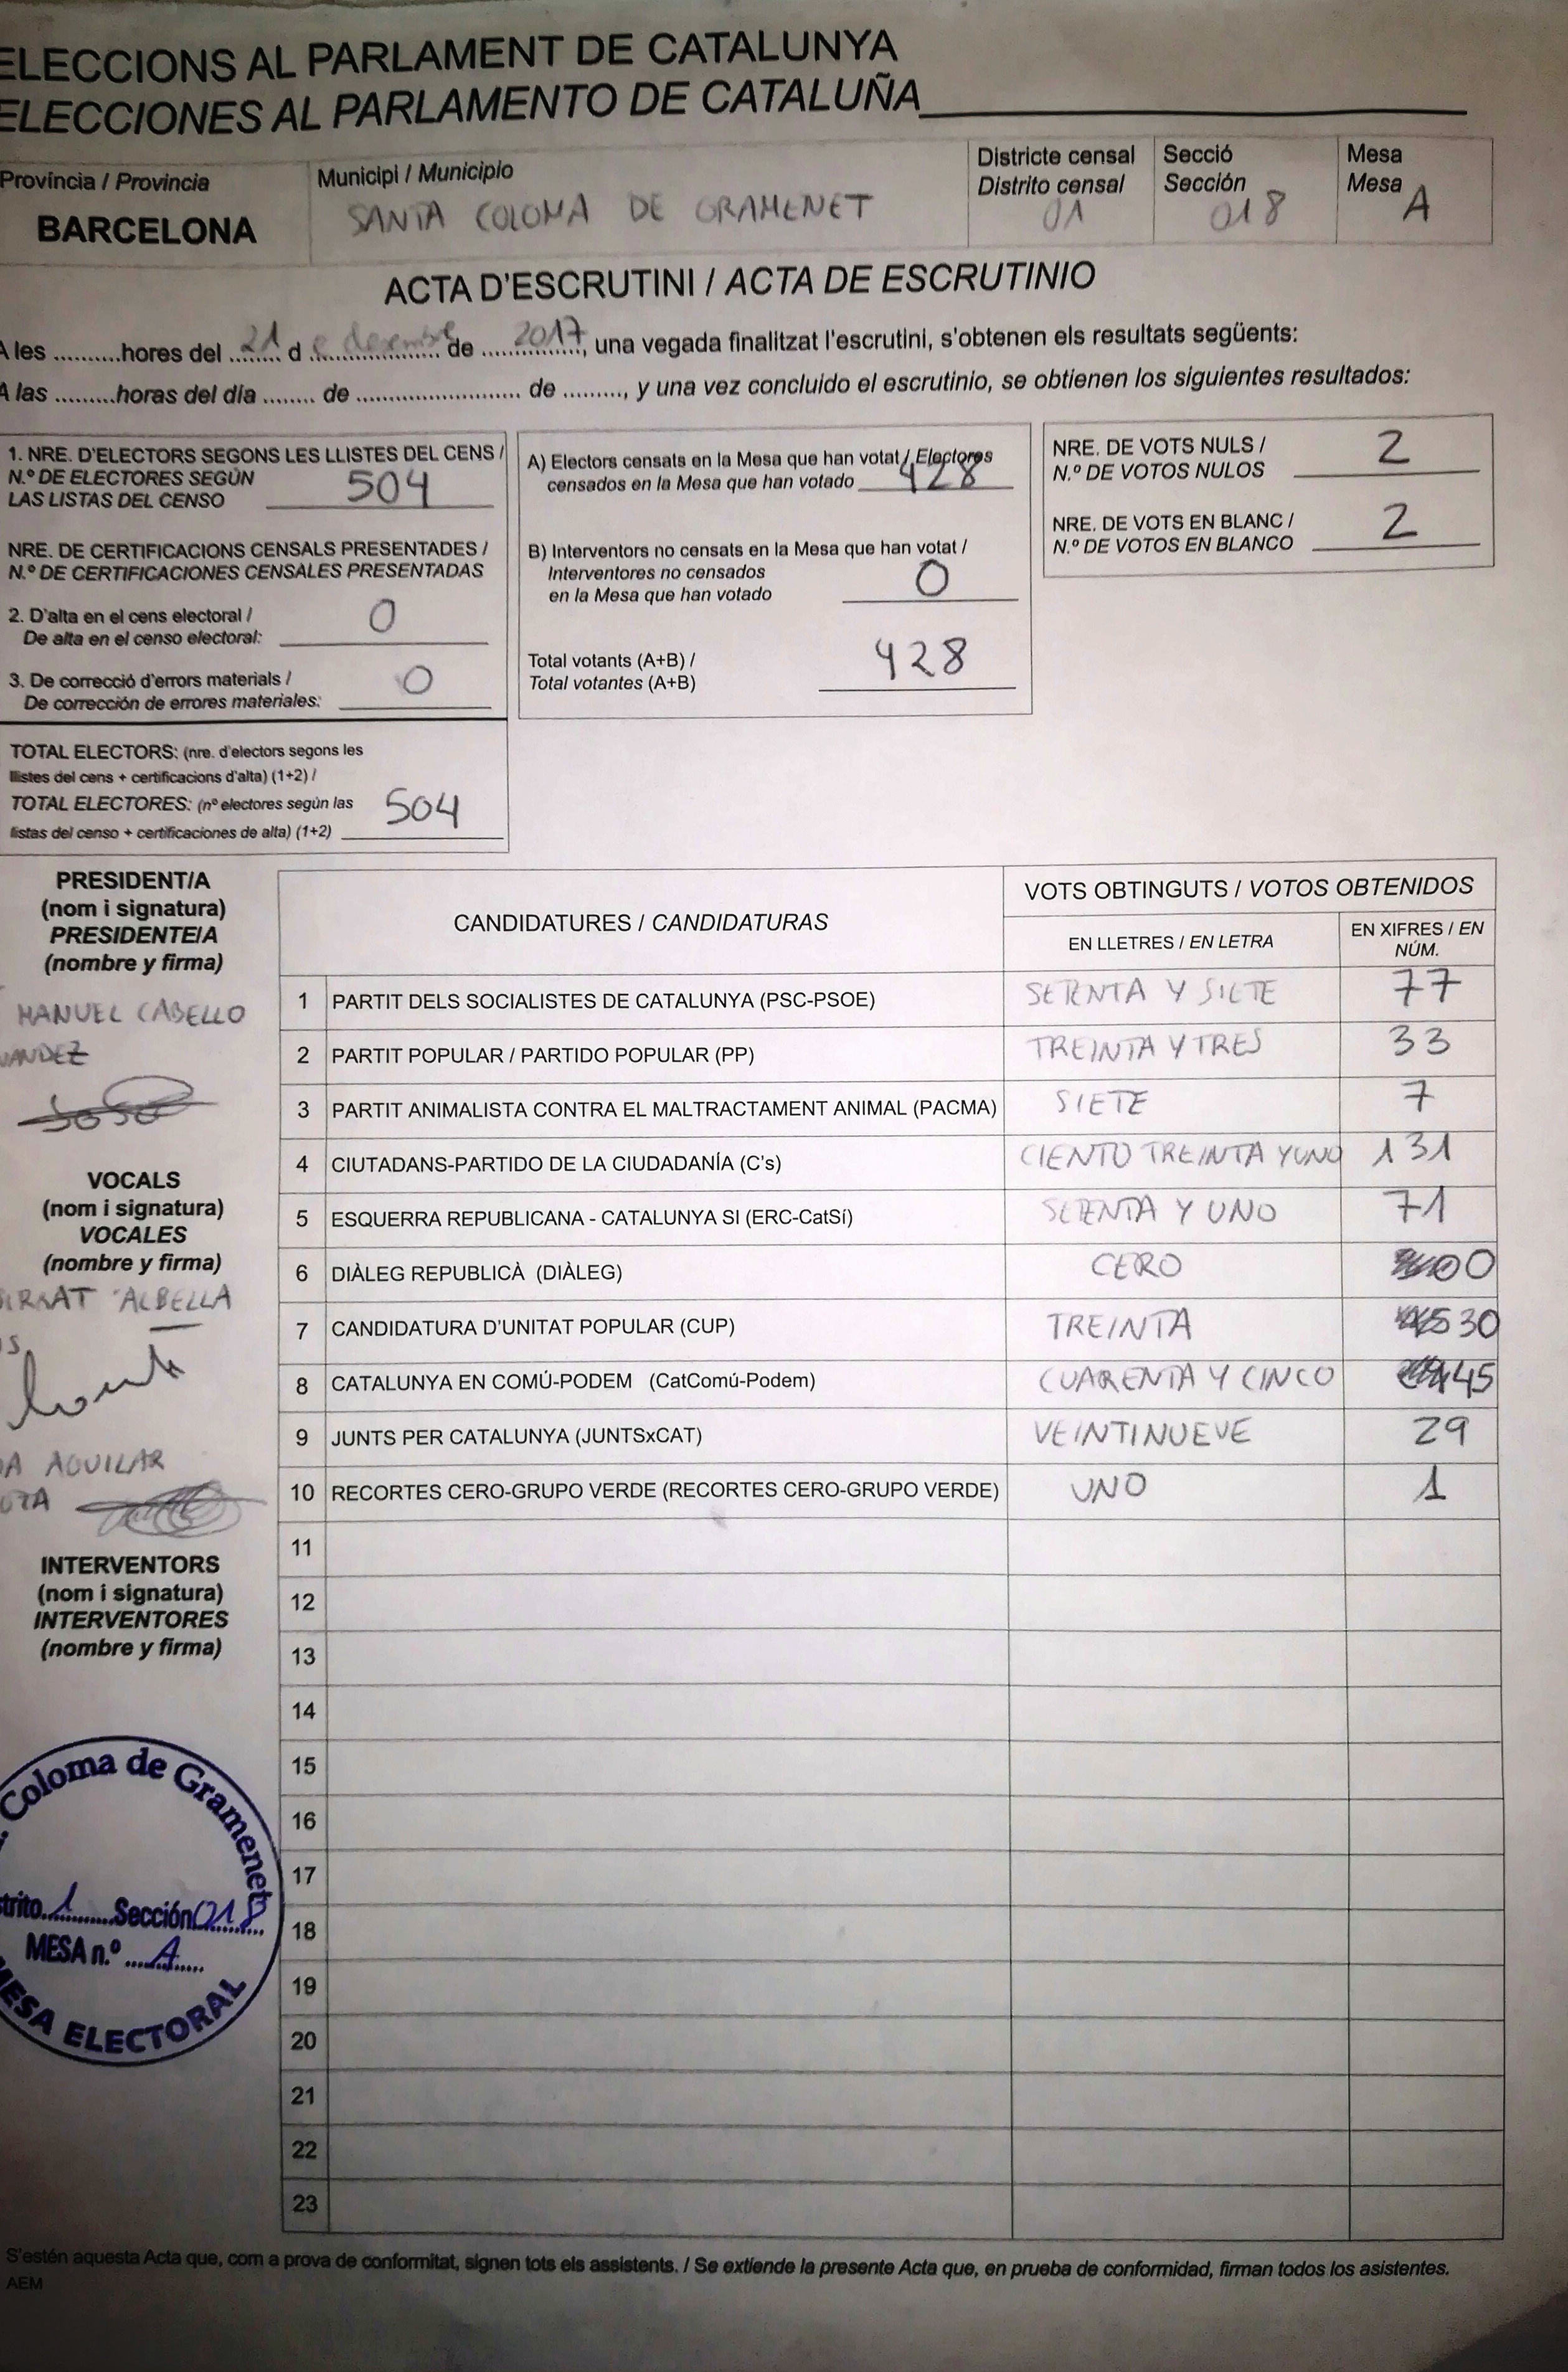 ELECCIONS AL PARLAMENT DE CATALUNYA
ELECCIONES AL PARLAMENTO DE CATALUÑA
Província / Provincia
BARCELONA
Municipi / Municipio
SANTA COLOMA DE GRAMENET
Districte censal
Distrito censal
01
Secció
Sección
018
Mesa
Mesa
A
ACTA D'ESCRUTINI / ACTA DE ESCRUTINIO
A les ..........hores del 21 d e desembre de 2017, una vegada finalitzat l'escrutini, s'obtenen els resultats següents:
A las .........horas del día ........ de ........................ de ........., y una vez concluido el escrutinio, se obtienen los siguientes resultados:
1. NRE. D'ELECTORS SEGONS LES LLISTES DEL CENS /
N.º DE ELECTORES SEGÚN
LAS LISTAS DEL CENSO 504
NRE. DE CERTIFICACIONS CENSALS PRESENTADES /
N.º DE CERTIFICACIONES CENSALES PRESENTADAS
2. D'alta en el cens electoral /
De alta en el censo electoral: 0
3. De correcció d'errors materials /
De corrección de errores materiales: 0
TOTAL ELECTORS: (nre. d'electors segons les
llistes del cens + certificacions d'alta) (1+2) /
TOTAL ELECTORES: (nº electores según las
listas del censo + certificaciones de alta) (1+2) 504
A) Electors censats en la Mesa que han votat / Electores
censados en la Mesa que han votado 428
B) Interventors no censats en la Mesa que han votat /
Interventores no censados
en la Mesa que han votado 0
Total votants (A+B) /
Total votantes (A+B) 428
NRE. DE VOTS NULS /
N.º DE VOTOS NULOS 2
NRE. DE VOTS EN BLANC /
N.º DE VOTOS EN BLANCO 2
PRESIDENT/A
(nom i signatura)
PRESIDENTE/A
(nombre y firma)
MANUEL CABELLO
NANDEZ
VOCALS
(nom i signatura)
VOCALES
(nombre y firma)
ALBELLA
AGUILAR
INTERVENTORS
(nom i signatura)
INTERVENTORES
(nombre y firma)
Coloma de Gramenet
trito 1 Sección 018
MESA n.º A
MESA ELECTORAL
CANDIDATURES / CANDIDATURAS
VOTS OBTINGUTS / VOTOS OBTENIDOS
EN LLETRES / EN LETRA
EN XIFRES / EN
NÚM.
1 PARTIT DELS SOCIALISTES DE CATALUNYA (PSC-PSOE) SETENTA Y SIETE 77
2 PARTIT POPULAR / PARTIDO POPULAR (PP) TREINTA Y TRES 33
3 PARTIT ANIMALISTA CONTRA EL MALTRACTAMENT ANIMAL (PACMA) SIETE 7
4 CIUTADANS-PARTIDO DE LA CIUDADANÍA (C's) CIENTO TREINTA Y UNO 131
5 ESQUERRA REPUBLICANA - CATALUNYA SI (ERC-CatSí) SETENTA Y UNO 71
6 DIÀLEG REPUBLICÀ (DIÀLEG) CERO 0
7 CANDIDATURA D'UNITAT POPULAR (CUP) TREINTA 30
8 CATALUNYA EN COMÚ-PODEM (CatComú-Podem) CUARENTA Y CINCO 45
9 JUNTS PER CATALUNYA (JUNTSxCAT) VEINTINUEVE 29
10 RECORTES CERO-GRUPO VERDE (RECORTES CERO-GRUPO VERDE) UNO 1
11
12
13
14
15
16
17
18
19
20
21
22
23
S'estén aquesta Acta que, com a prova de conformitat, signen tots els assistents. / Se extiende la presente Acta que, en prueba de conformidad, firman todos los asistentes.
AEM